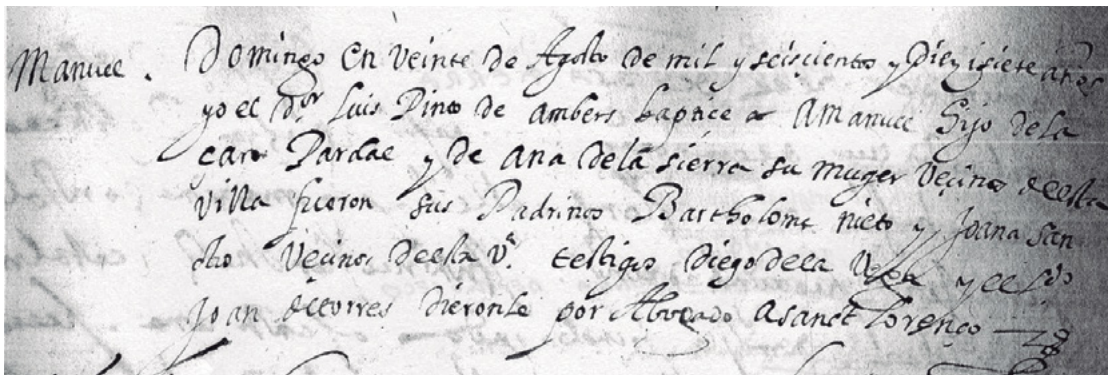 Manuel. Domingo en veinte de Agosto de mil y seiscientos y Diez i siete años
yo el d.or Luis Pinto de ambers baptice a A Manuel hijo de la
caro Pardae y de ana de la sierra su muger Veçinos de esta
villa fueron sus Padrinos Bartholome nieto y Joana San
cho Veçinos de esta v.ª testigos Diego de la Vega y el
Joan de torres dieronle por Abogado a Sanct Lorenço